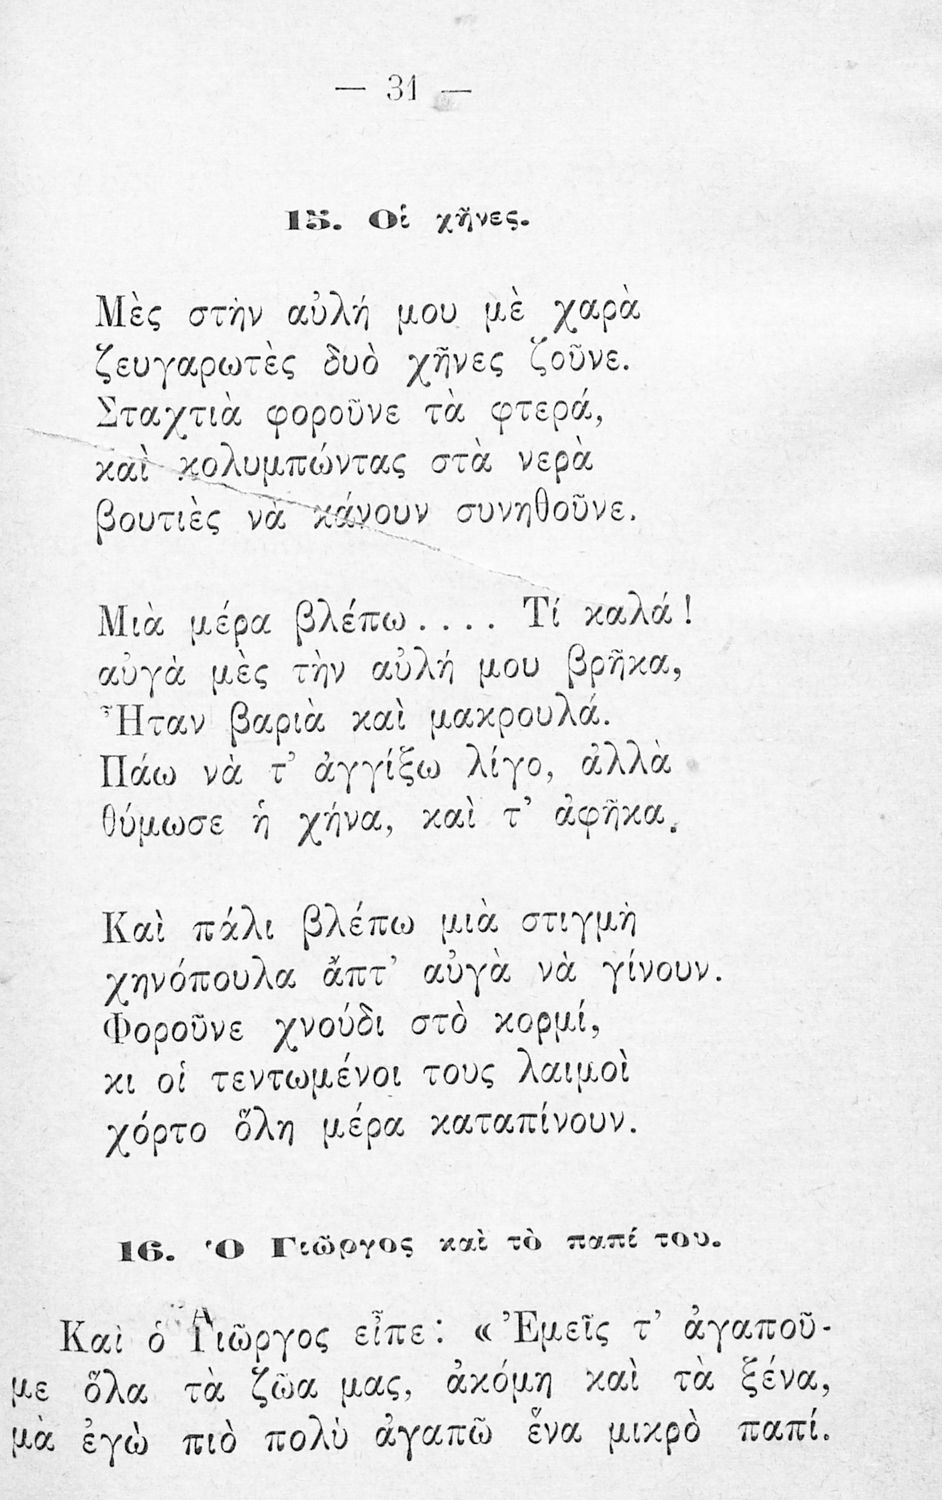 — 31 —
15. Οἱ χῆνες.
Μὲς στὴν αὐλή μου μὲ χαρὰ
ζευγαρωτὲς δυὸ χῆνες ζοῦνε.
Σταχτιὰ φοροῦνε τὰ φτερά,
καὶ κολυμπώντας στὰ νερὰ
βουτιὲς νὰ κάνουν συνηθοῦνε.
Μιὰ μέρα βλέπω.... Τί καλά!
αὐγὰ μὲς τὴν αὐλή μου βρῆκα,
Ἦταν βαριὰ καὶ μακρουλά.
Πάω νὰ τ’ ἀγγίξω λίγο, ἀλλὰ
θύμωσε ἡ χήνα, καὶ τ’ ἀφῆκα.
Καὶ πάλι βλέπω μιὰ στιγμὴ
χηνόπουλα ἄπτ’ αὐγὰ νὰ γίνουν.
Φοροῦνε χνούδι στὸ κορμί,
κι οἱ τεντωμένοι τους λαιμοὶ
χόρτο ὅλη μέρα καταπίνουν.
16. Ὁ Γιῶργος καὶ τὸ παπί του.
Καὶ ὁ Γιῶργος εἶπε: «Ἐμεῖς τ’ ἀγαποῦ-
με ὅλα τὰ ζῶα μας, ἀκόμη καὶ τὰ ξένα,
μὰ ἐγὼ πιὸ πολὺ ἀγαπῶ ἕνα μικρὸ παπί.